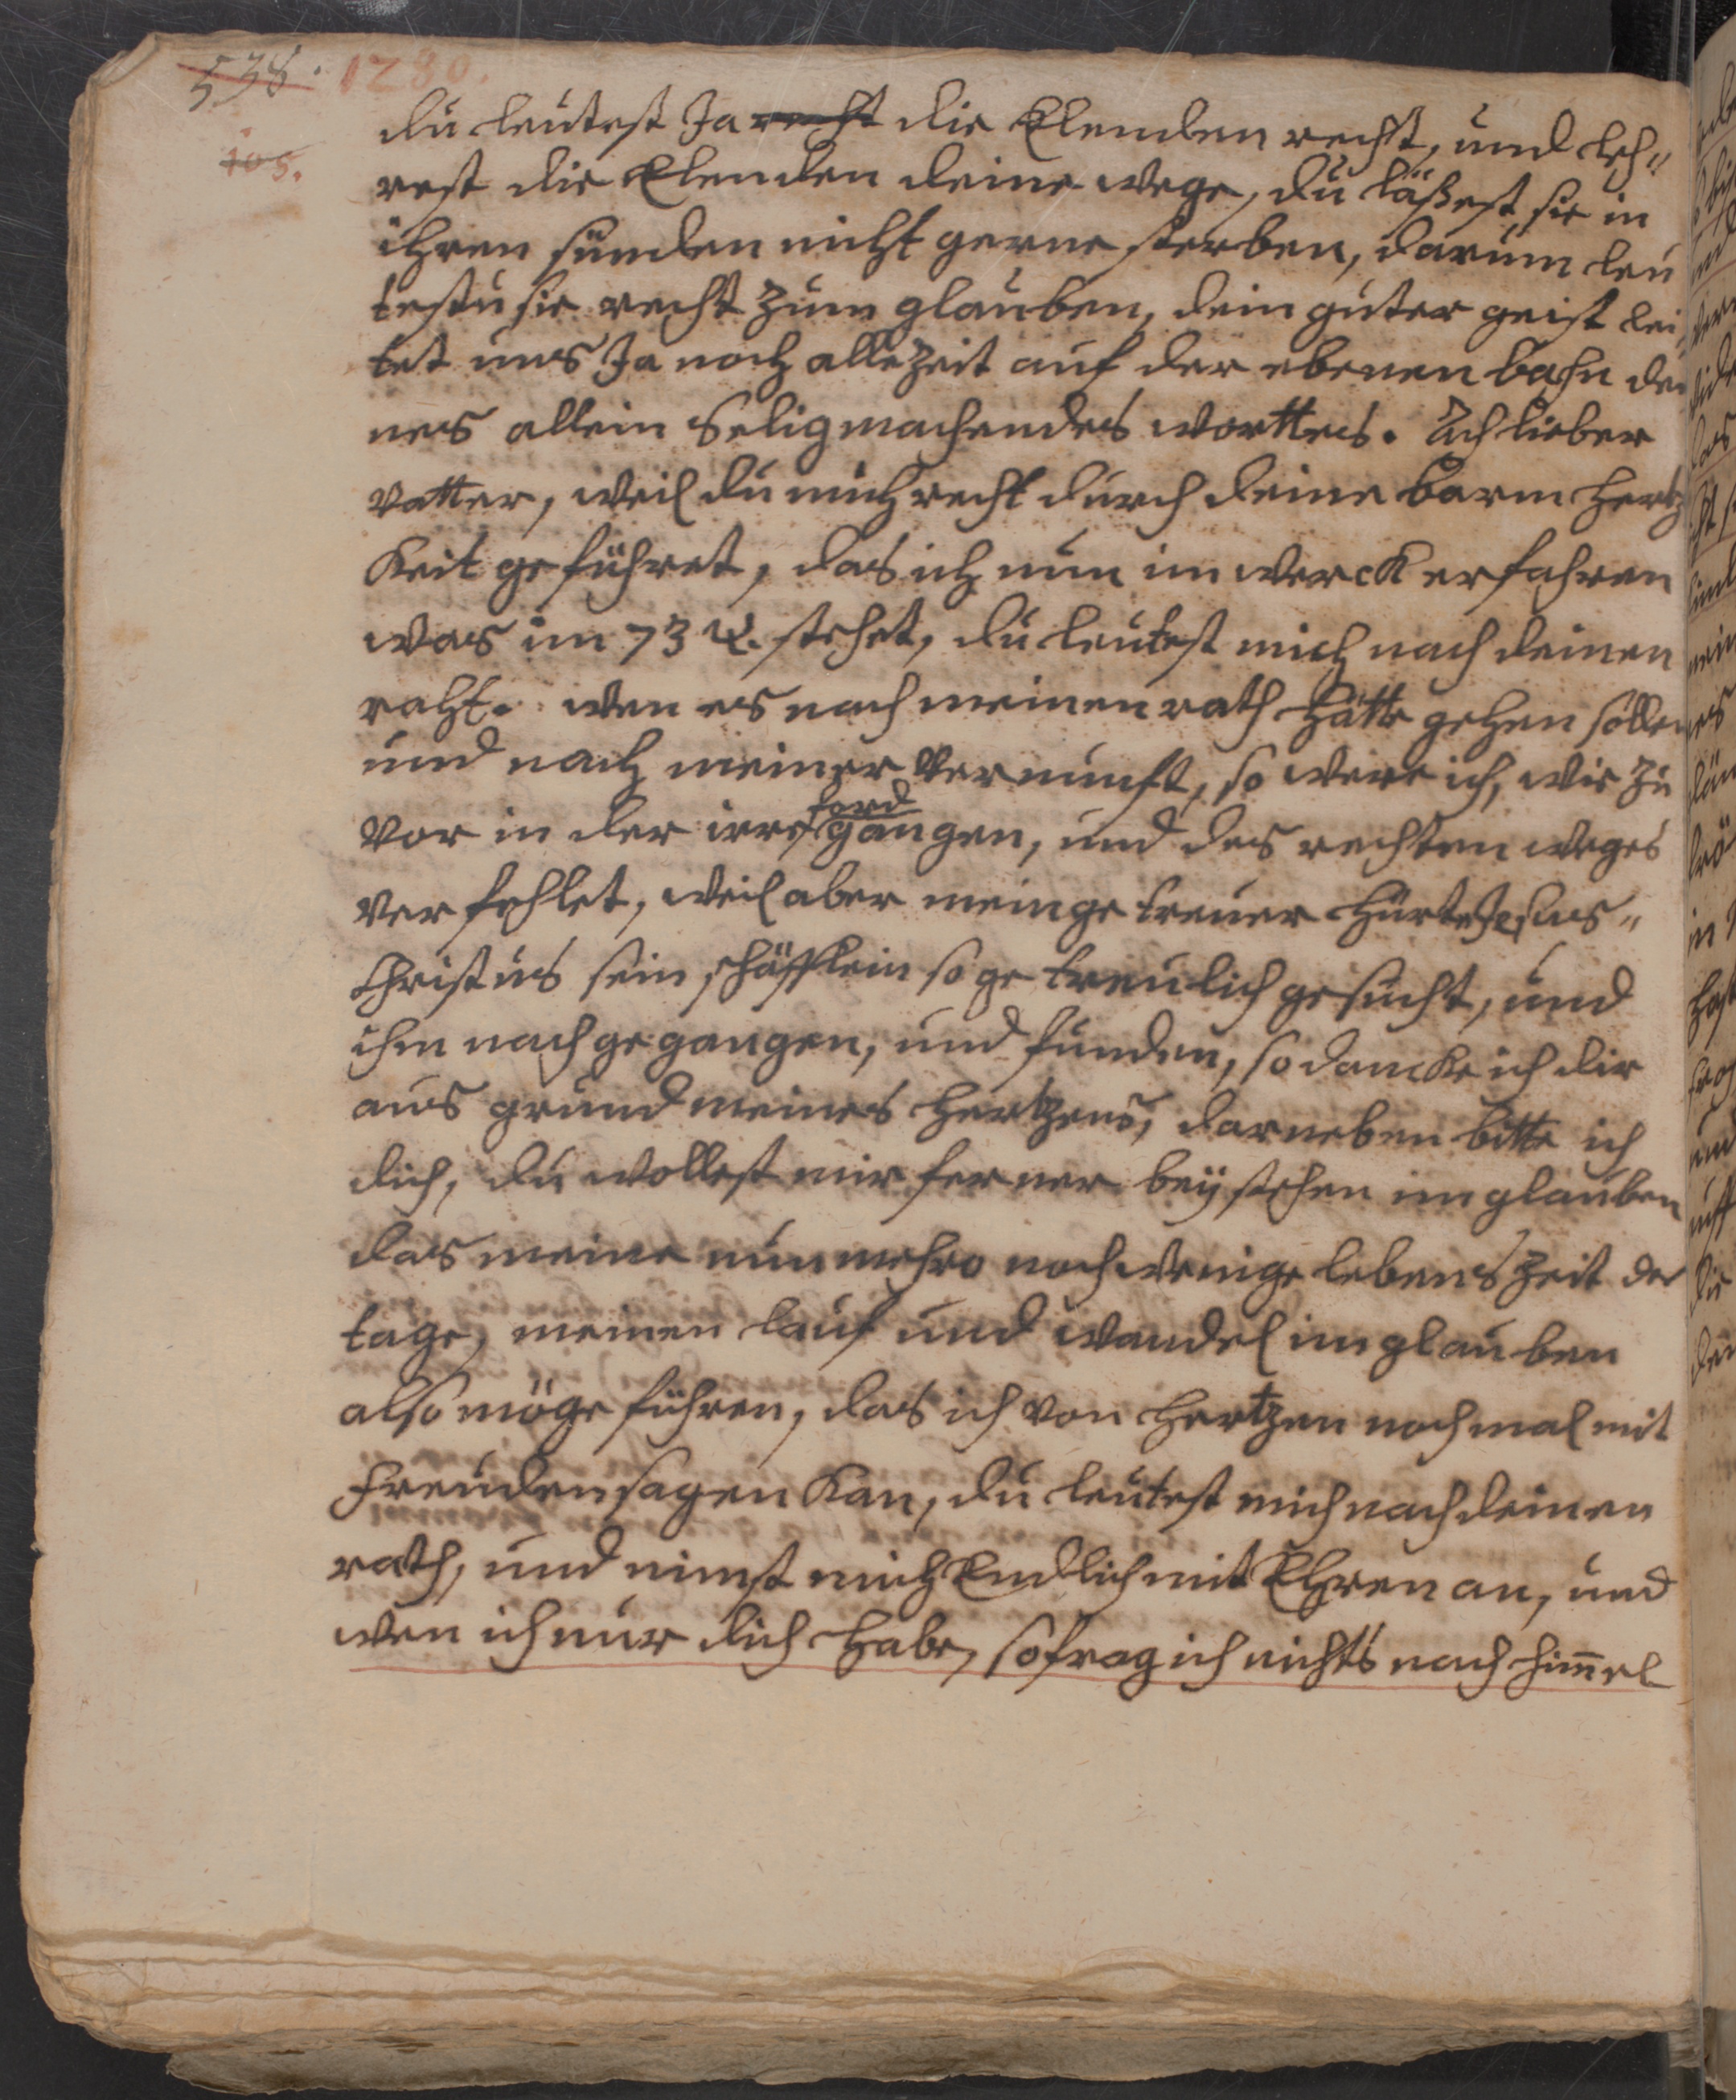 538. 1280.
105.
du leutest Ja recht die Elenden recht, und leh"
rest die Elenden deine wege, du läßest sie in
ihren sünden nicht gerne sterben, darum leu
testu sie recht zum glauben, dein guter geist lei
tet uns Ja noch allezeit auf der ebenen bahn dei
nes allein Seligmachendes worttes. Ach lieber
vatter, weil du mich recht durch deine barm hertz
keit geführet, das ich nun im werck erfahren
was im 73 ψ. stehet, du leutest mich nach deinen
raht. wen es nach meinen rath hätte gehen sollen
und nach meiner vernunfft, so were ich, wie zu
vor in der irre ford
gangen, und des rechten weges
verfehlet, weil aber mein getreuer hürte Jesus"
Christus sein schäfflein so getreulich gesucht, und
ihm nach gegangen, und funden, so dancke ich dir
aus grund meines hertzens, darneben bitte ich
dich, du wollest mir ferner beÿstehen im glauben
das meine nunmehro noch wenige lebens zeit der
tage, meinen lauf und wandel im glauben
also möge führen, das ich von hertzen nochmal mit
freuden sagen kan, du leutest mich nach deinen
rath, und nimst mich Endlich mit Ehren an, und
wen ich nur dich habe, so frag ich nichts nach him̅el